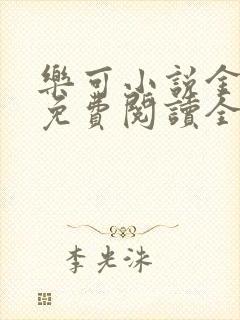 樂可小説全
免費閱讀全
李光洙